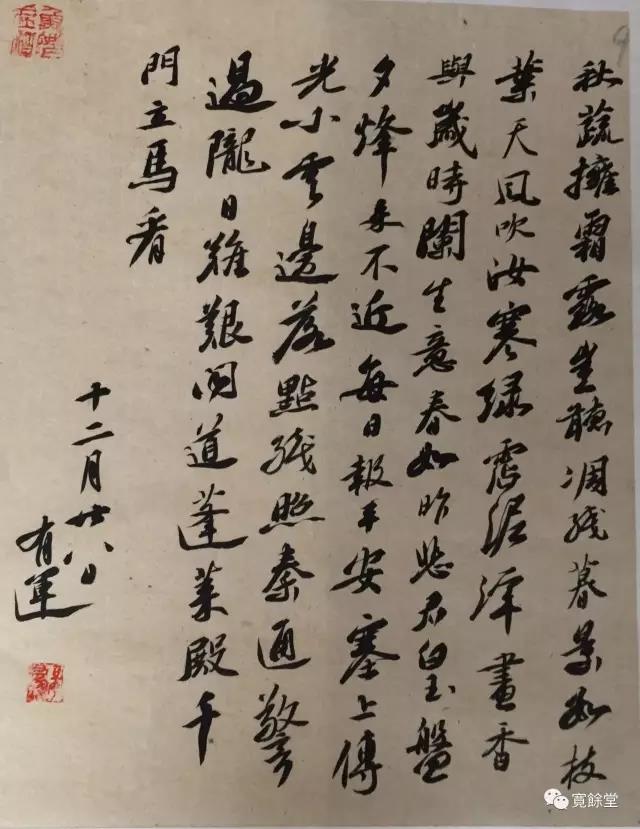 秋蔬擁霜露聽凋殘暮景如枝
葉天風吹汝寒綠霑泥滓盡香
與歲時闌生意春如昨悲君白玉盤
夕烽來不近每日報平安塞上傳
光小雲邊落點殘照秦通警
過隴日難艱聞道蓬萊殿千
門立馬看
十二月廿八日
有運
9
寬餘堂